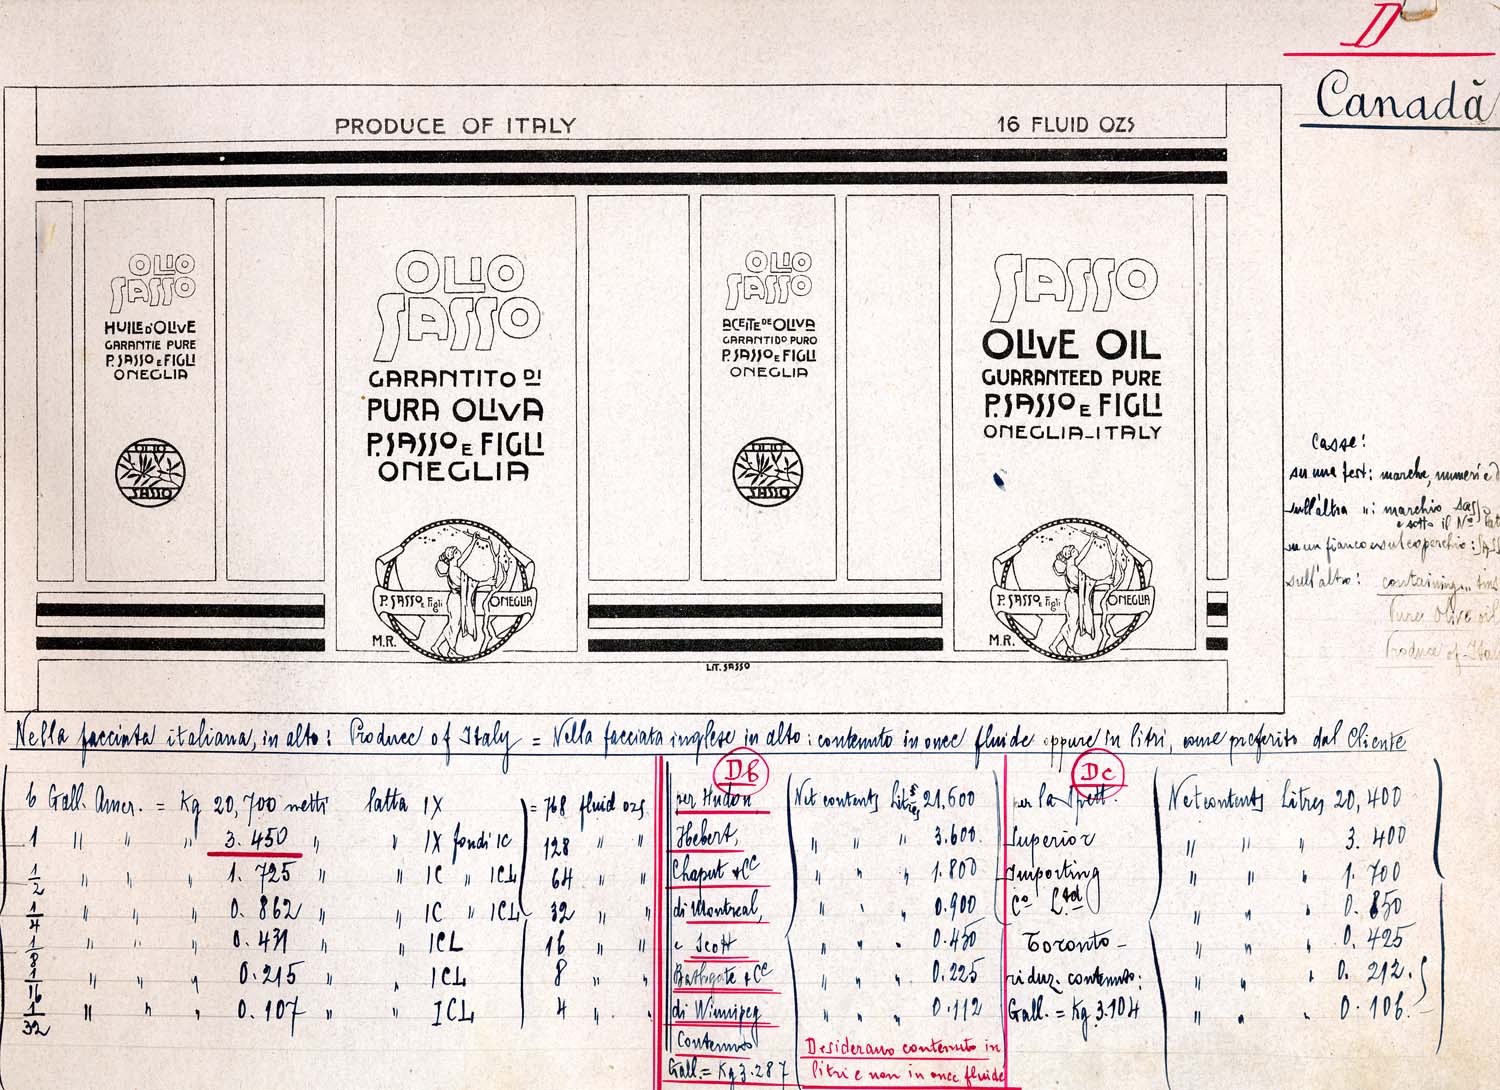 D
Canadà
PRODUCE OF ITALY
16 FLUID OZS
OLIO
SASSO
HUILE D'OLIVE
GARANTIE PURE
P. SASSO E FIGLI
ONEGLIA
OLIO
SASSO
OLIO
SASSO
GARANTITO DI
PURA OLIVA
P. SASSO E FIGLI
ONEGLIA
P. SASSO E Figli ONEGLIA
M.R.
OLIO
SASSO
ACEITE DE OLIVA
GARANTIDO PURO
P. SASSO E FIGLI
ONEGLIA
OLIO
SASSO
SASSO
OLIVE OIL
GUARANTEED PURE
P. SASSO E FIGLI
ONEGLIA-ITALY
P. SASSO E Figli ONEGLIA
M.R.
LIT. SASSO
Casse:
su una test: marche, numeri e d
sull'altra ": marchio Sas
e sotto il No lat
su un fianco e sul coperchio: SASS
sull'altro: containing... tins
Pure Olive oil
Produce of Ital
Nella facciata italiana, in alto: Produce of Italy = Nella facciata inglese in alto: contenuto in once fluide oppure in litri, come preferito dal Cliente
6 Gall. Amer. = Kg 20,700 netti latta IX = 768 fluid ozs.
1 " " " 3.450 " " IX fondi IC 128 " "
1/2 " " " 1.725 " " IC " ICL 64 " "
1/4 " " " 0.862 " " IC " ICL 32 " "
1/8 " " " 0.431 " " ICL 16 " "
1/16 " " " 0.215 " " ICL 8 " "
1/32 " " " 0.107 " " ICL 4 " "
Db
per Hudon,
Hebert,
Chaput & Ce
di Montreal,
e Scott
Bathgate & Ce
di Winnipeg
Contenuto
Gall. = Kg 3.287
Net contents Litres 21.600
" " " 3.600
" " " 1.800
" " " 0.900
" " " 0.450
" " " 0.225
" " " 0.112
Desiderano contenuto in
litri e non in once fluide
Dc
per la Spett.
Superior
Importing
Co Ltd
Toronto -
riduz. contenuto:
Gall. = Kg 3.104
Net contents Litres 20,400
" " " 3.400
" " " 1.700
" " " 0.850
" " " 0.425
" " " 0.212.5
" " " 0.106.